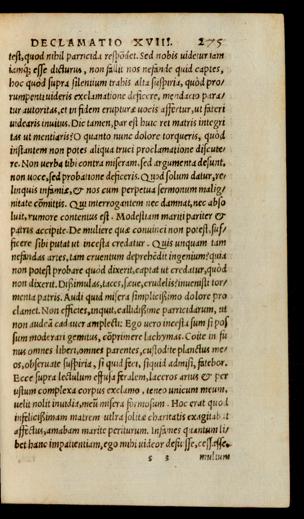 DECLAMATIO XVIII. 275
test, quod nihil parricida respōdet. Sed nobis uidetur iam
iamq; esse dicturus, non fallit nos nefande quid captes,
hoc quod supra silentium trahis alta suspiria, quòd pro/
rumpenti uideris exclamatione deficere, mendacio para/
tur autoritas, et in fidem erupturæ uocis affertur, ut fateri
uidearis inuitus. Dic tamen, par est huic rei matris integri
tas ut mentiaris? O quanto nunc dolore torqueris, quòd
instantem non potes aliqua truci proclamatione discute/
re. Non uerba tibi contra miseram, sed argumenta desunt,
non uoce, sed probatione deficeris. Quod solum datur, re/
linquis infamiæ, & nos cum perpetua sermonum malig/
nitate cōmittis. Qui interrogantem nec damnat, nec abso
luit, rumore contentus est. Modestiam mariti pariter &
patris accipite. De muliere quæ conuinci non potest, suf/
ficere sibi putat ut incesta credatur. Quis unquam tam
nefandas artes, tam cruentum deprehēdit ingenium? quia
non potest probare quod dixerit, captat ut credatur, quòd
non dixerit. Dißimulas, taces, sæue, crudelis? inuenisti tor/
menta patris. Audi quid misera simplicißimo dolore pro
clamet. Non efficies, inquit, callidißime parricidarum, ut
non audeā cadauer amplecti: Ego uero incesta sum si pos
sum moderari gemitus, cōprimere lachymas. Coite in fu
nus omnes liberi, omnes parentes, custodite planctus me/
os, obseruate suspiria, si quid feci, siquid admisi, fatebor.
Ecce supra lectulum effusa feralem, laceros artus & per
ustum complexa corpus exclamo, teneo unicum meum,
uelit nolit inuidia, meū misera formosum. Hoc erat quod
infelicißimam matrem ultra solitæ charitatis exagitabat
affectus, amabam marite periturum. Infames quantum li/
bet hanc impatientiam, ego mihi uideor desisse, cessasse.
s 3 multum